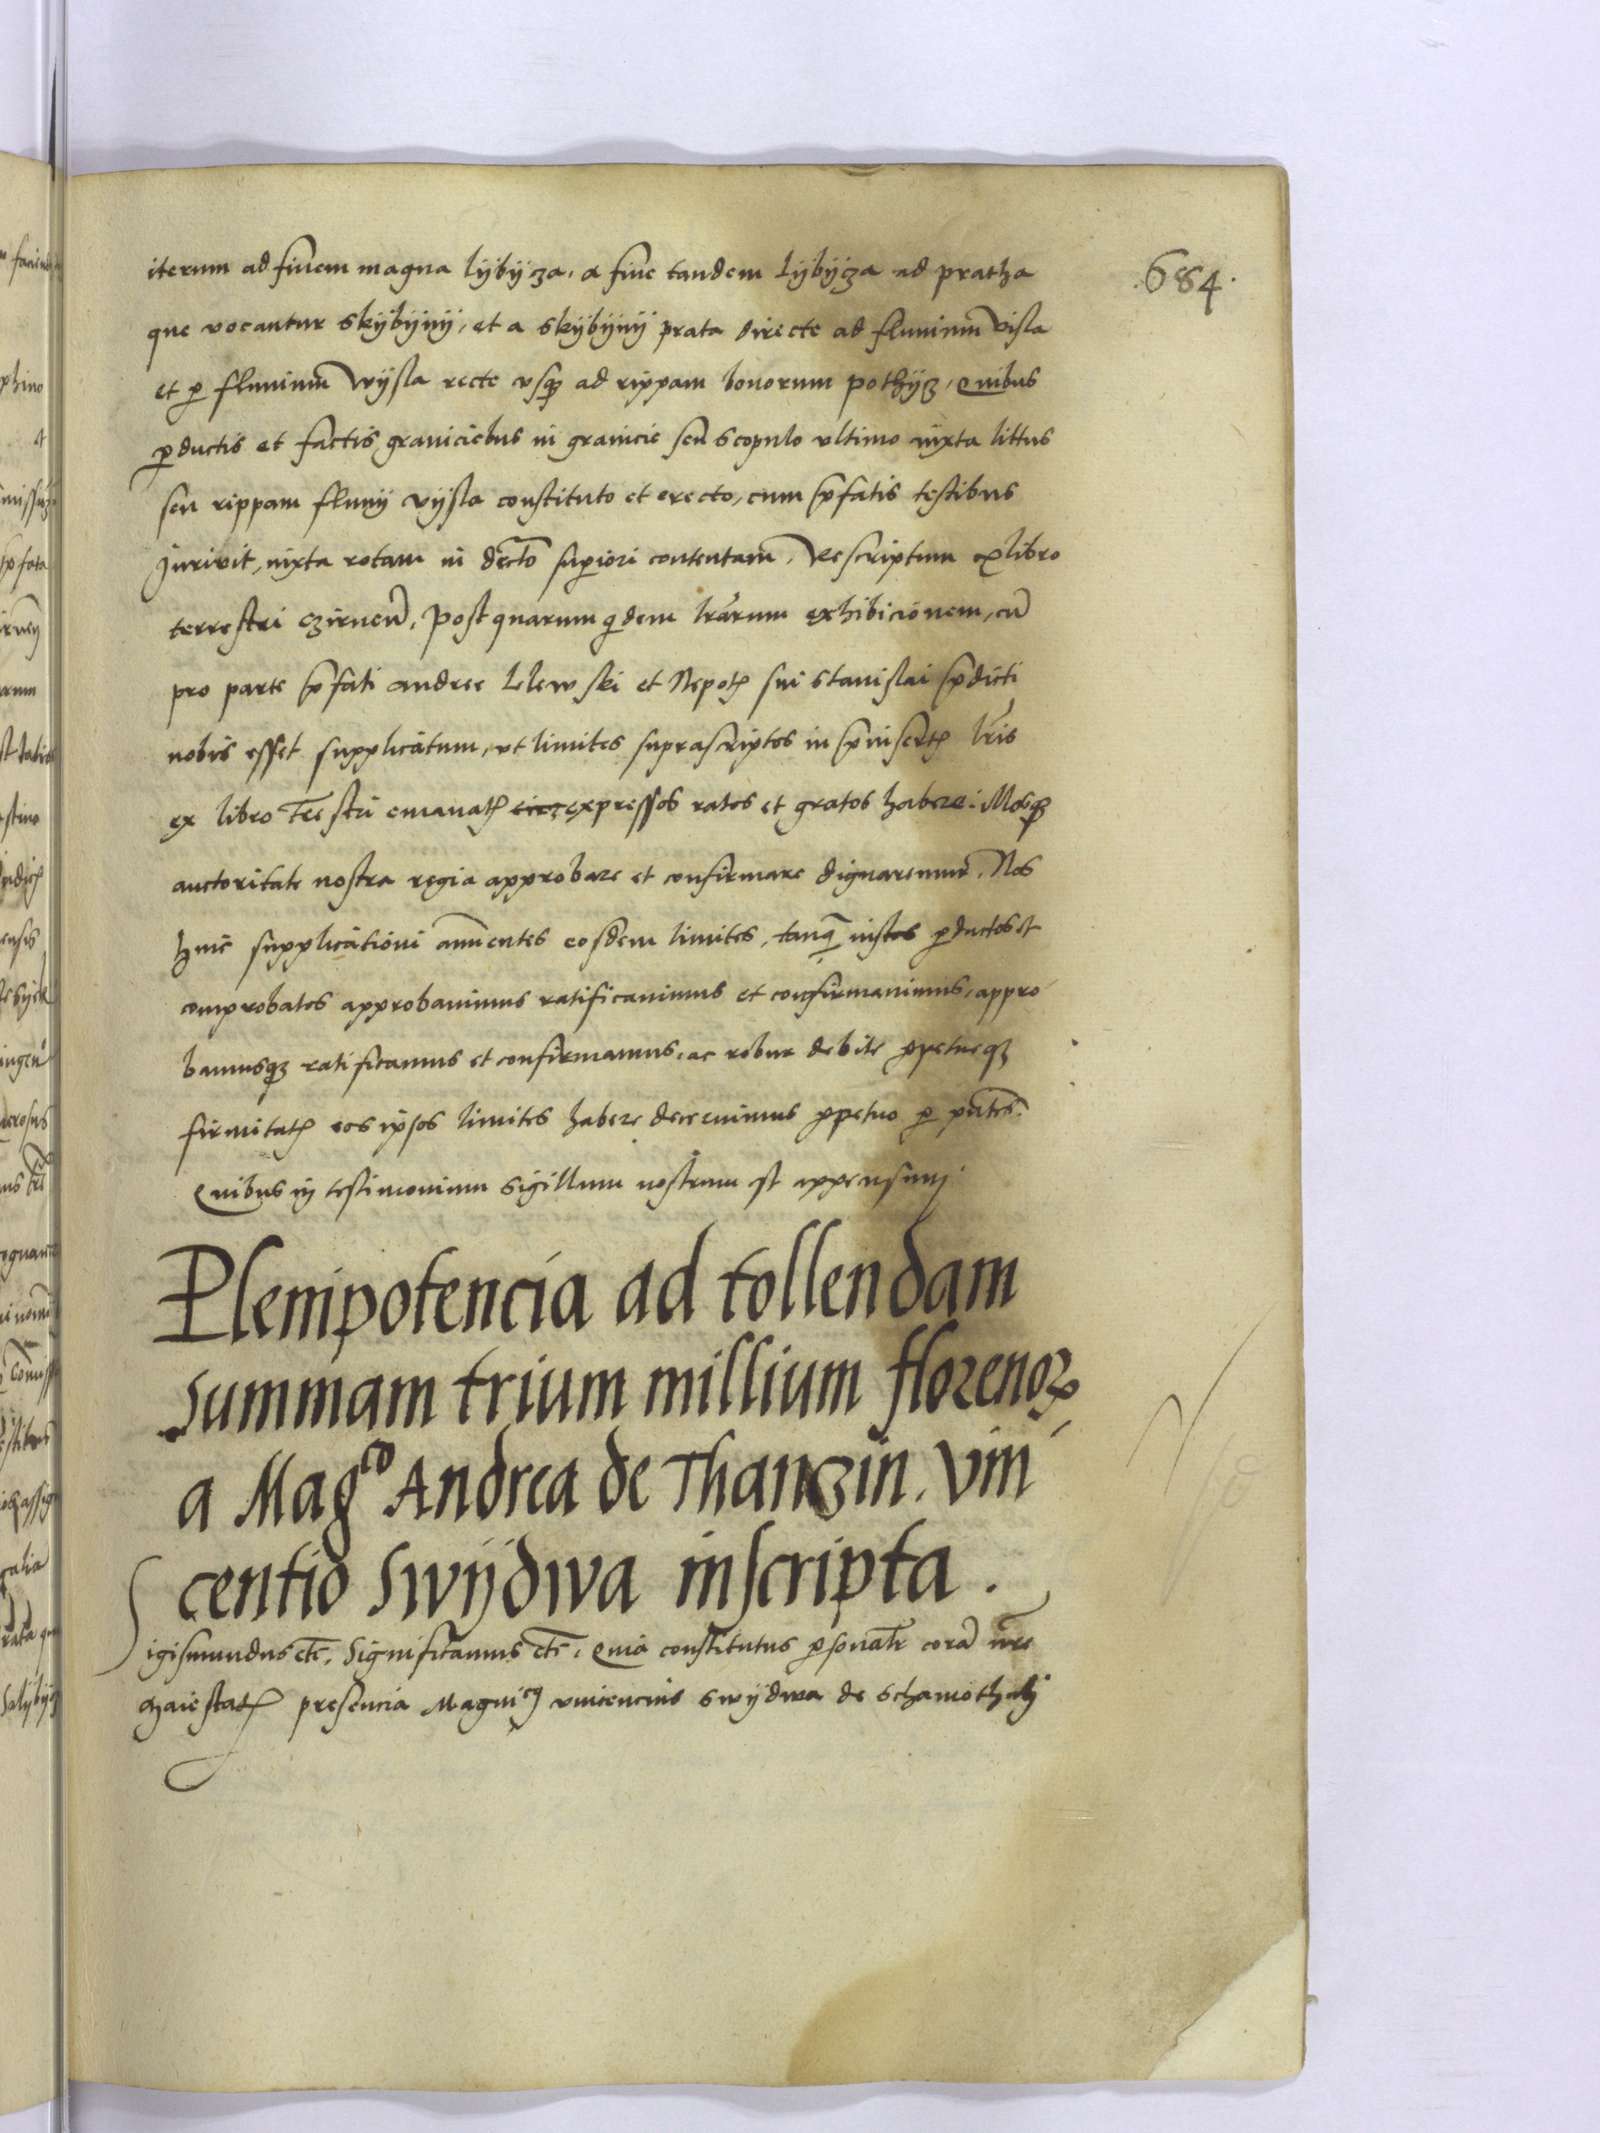 iterum ad finem magna lÿbÿza, a fine tandem lÿbÿza ad pratha
.684.
que vocantur skÿbÿnÿ, et a skÿbÿnÿ prata directe ad fluuium visla
et p fluuium wÿsla recte vsqz ad rippam bonorum pothÿcz, Quibus
pductis et factis graniciebus in granicie seu scopulo vltimo iuxta littus
seu rippam fluuÿ vÿsla constituto et erecto, cum pfatis testibus
Juravit, iuxta rotam in decto superiori contentam, Rescriptum ex libro
terrestri czirnen, Post quarum qdem lrarum exhibicionem, cu
pro parte pfati andree Lewski et Nepotis sui stanislai pdicti
nobis esset supplicatum, vt limites suprascriptos in pinsertis lris
ex libro Trestri emanatis expressos ratos et gratos habere: Mosqz
auctoritate nostra regia approbare et confirmare dignaremur. Nos
huic supplicationi annuentes eosdem limites, tanq iustos pductos et
comprobatos approbauimus ratificauimus et confirmauimus, appro
bamusqz ratificamus et confirmamus, ac robur debite ppetueqz
firmitatis eos ipsos limites habere decernimus ppetuo p pntes.
Quibus in testimonium sigillum nostrum est appensum.
Plenipotencia ad tollendam
summam trium millium florenor
a Magco Andrea de Thanczin. Vin
centio Swÿdwa inscripta.
Sigismundus etc. Significamus etc. Quia constitutus psonalr cora nre
Maiestatis presencia Magnicus vincencius swÿdwa de schamothulÿ